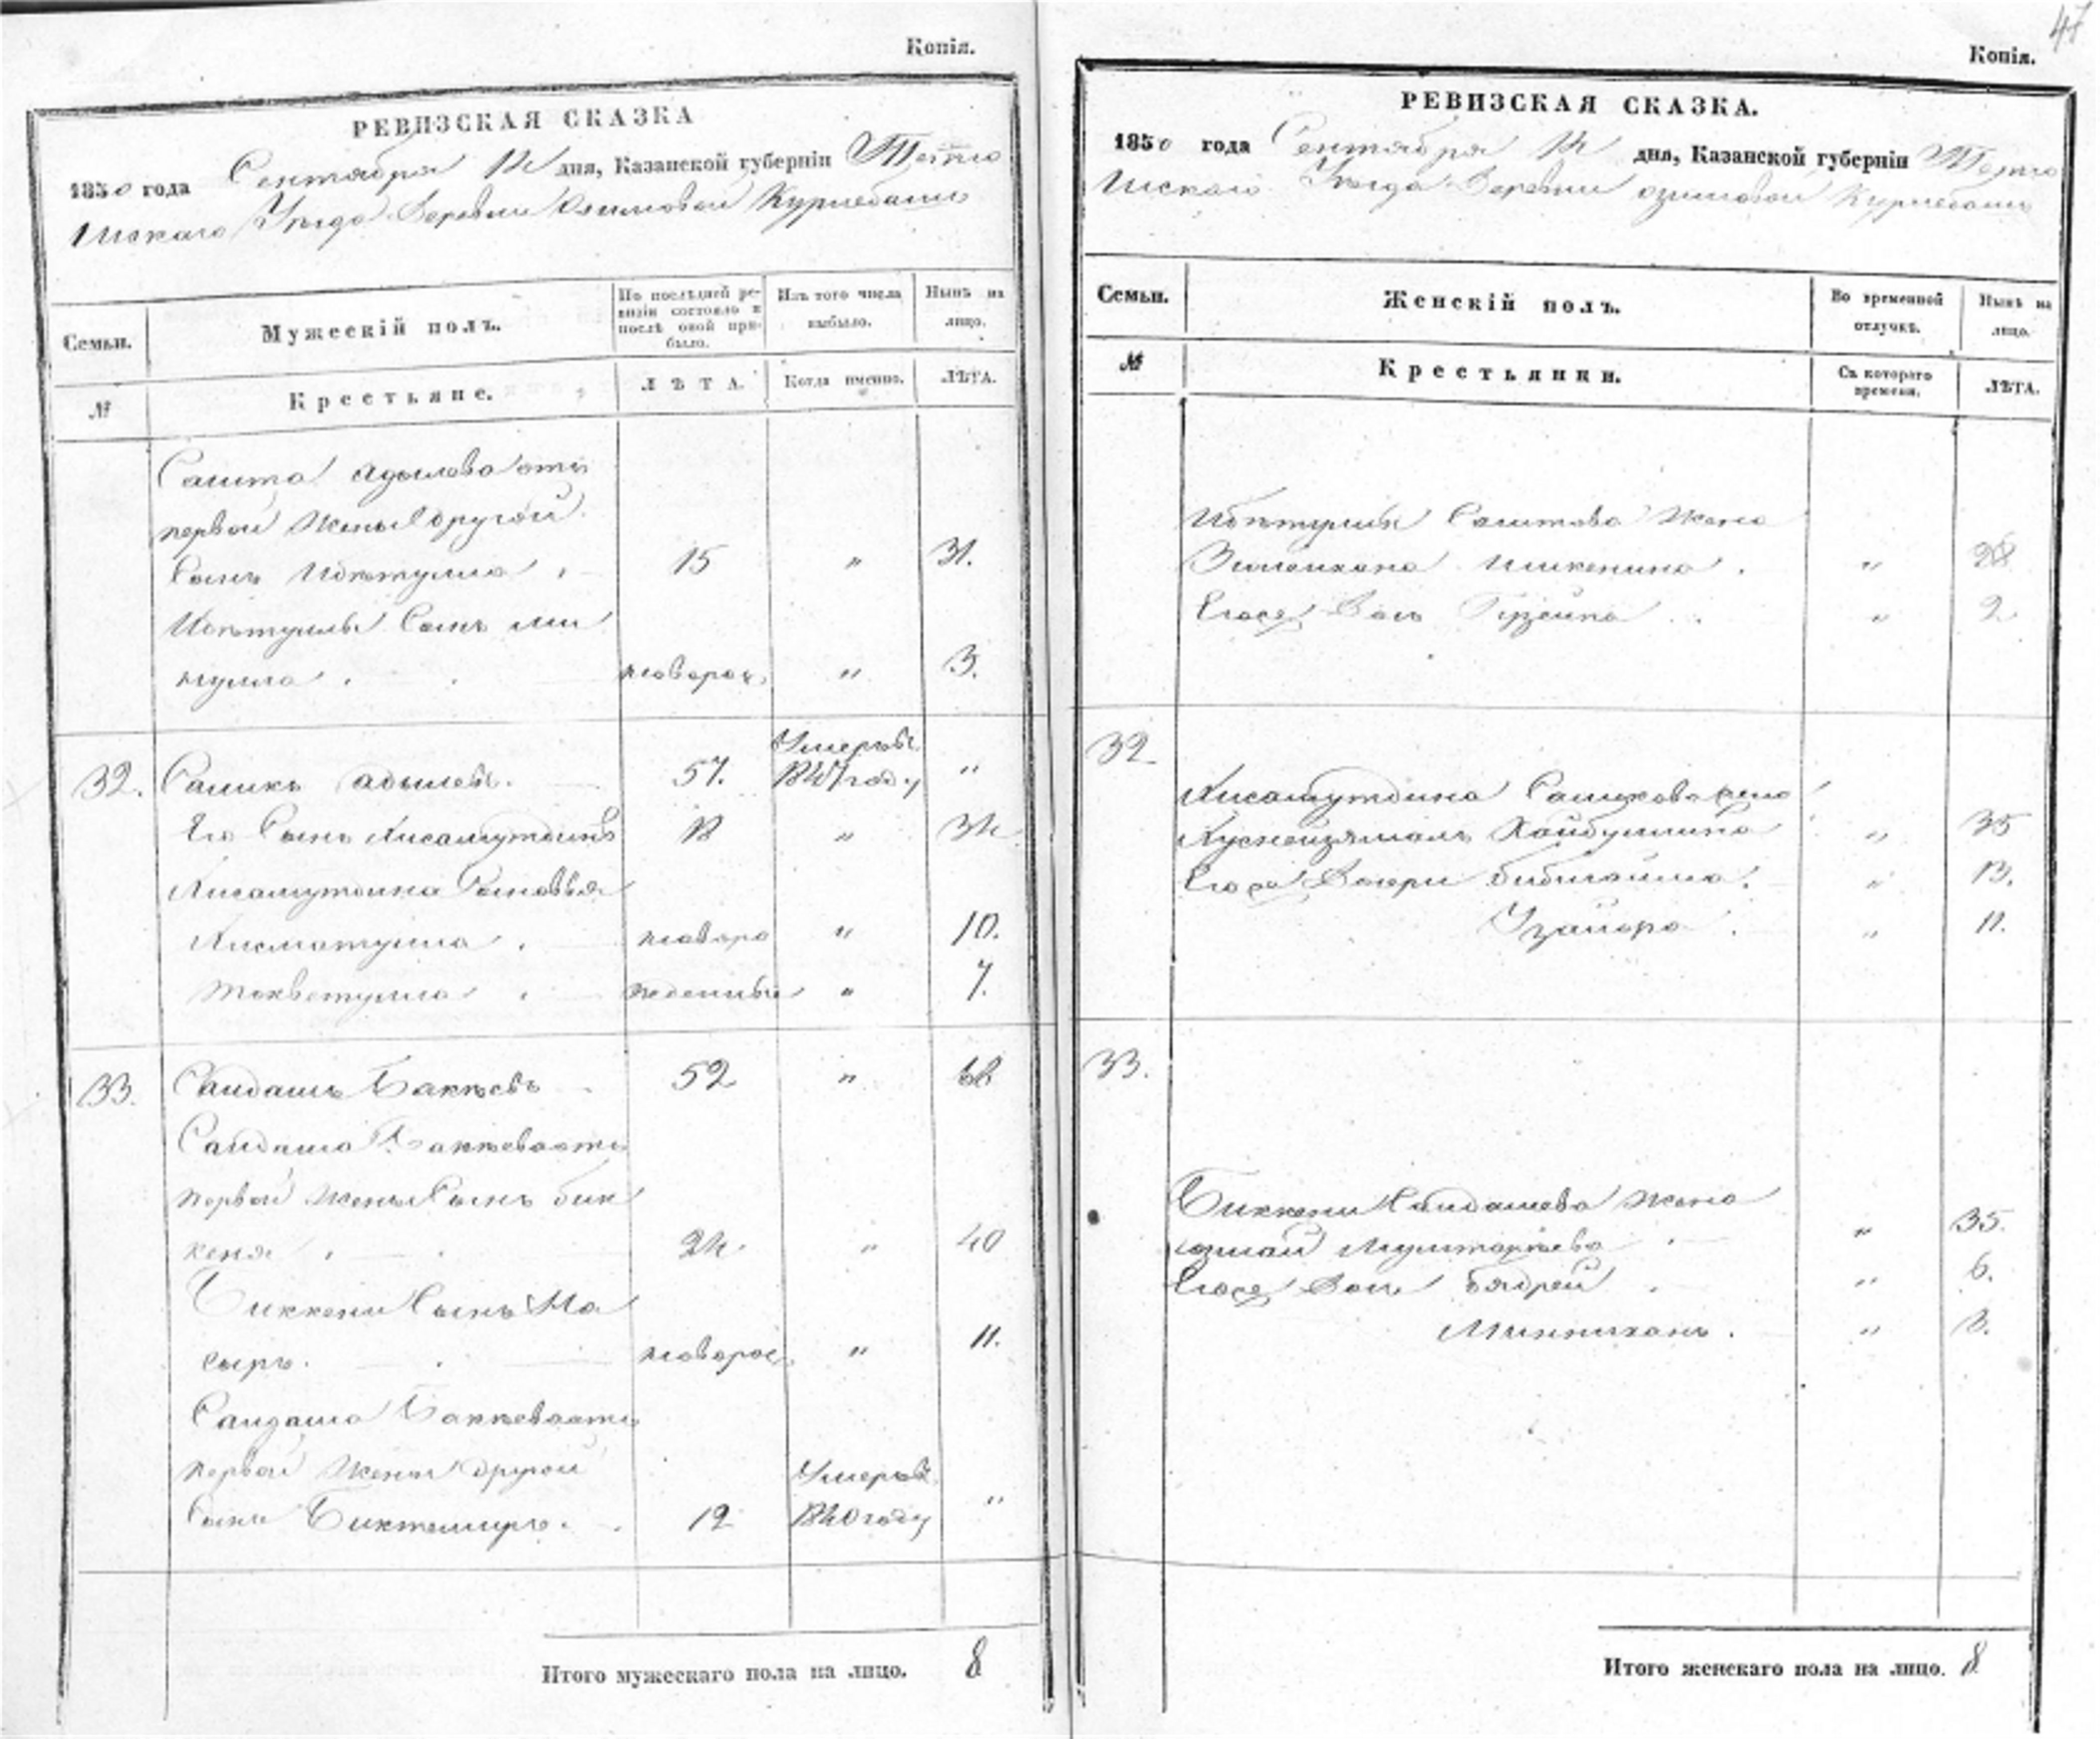 Копія.
РЕВИЗСКАЯ СКАЗКА
1850 года Сентября 14 дня, Казанской губерніи Тетю
шскаго Уѣзда Деревни Азимовой Курнебаши
Семьи. Мужескій полъ. По послѣдней ре-визіи состояло и послѣ оной при-было. Изъ того числа выбыло. Нынѣ на лицо.
№ Крестьяне. ЛѢТА. Когда именно. ЛѢТА.
Саита Адылова отъ
первой Жены другой
Сынъ 15 " 31.
Сынъ Ми
нулла. новорож. " 3.
Умеръ въ
32. Саликъ Адылевъ. 57. 1847 году "
Его Сынъ Хисамутдинъ 18 " 34
Хисамутдина Сыновья
Хисматулла. новоро " 10.
жденные " 7.
33. Саидашъ Бакѣевъ 52 " 68
Саидаша Бакѣева отъ
первой Жены Сынъ Бик
кеня. 24. " 40
Биккени Сынъ На
сыръ. новорож. " 11.
Саидаша Бакѣева отъ
первой Жены другой Умеръ въ
Сынъ Биктемиръ. 12 1840 году "
Итого мужескаго пола на лицо. 8
47
Копія.
РЕВИЗСКАЯ СКАЗКА.
1850 года Сентября 14 дня, Казанской губерніи Тетю
шскаго Уѣзда Деревни Азимовой Курнебаши
Семьи. Женскій полъ. Во временной отлучкѣ. Нынѣ на лицо.
№ Крестьянки. Съ котораго времени. ЛѢТА.
Саитова Жена
" 28
Ею же Дочь " 2
32
Хисамутдина Саликова жена
Хуснизямалъ Хайбуллина " 35
Ею же Дочери " 13.
" 11.
33.
Биккени Саидашева Жена
" 35.
Ею же Дочь Бядрей " 6.
Миннихонъ. " 3.
Итого женскаго пола на лицо. 8